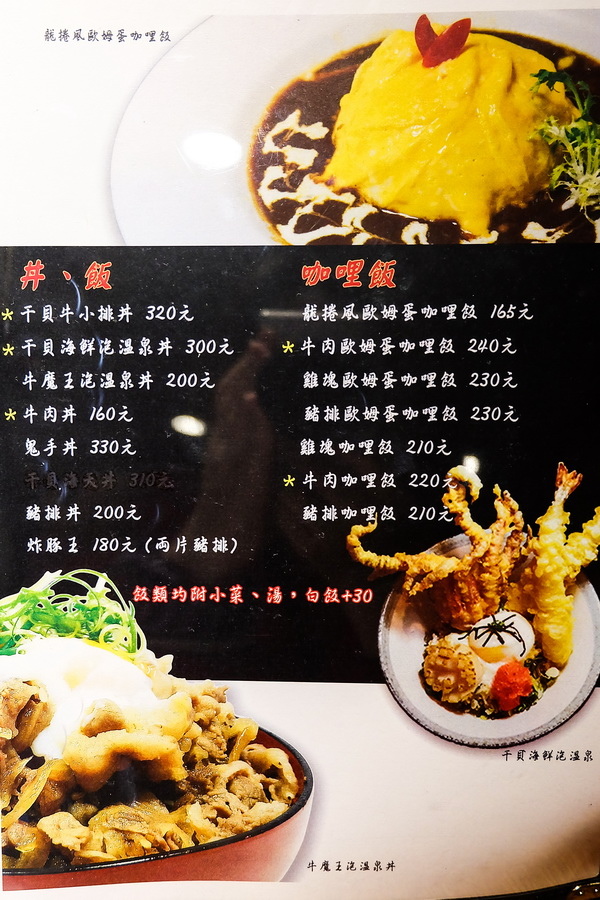 龍捲風歐姆蛋咖哩飯
丼、飯
*干貝牛小排丼 320元
*干貝海鮮泡溫泉丼 300元
牛魔王泡溫泉丼 200元
*牛肉丼 160元
鬼手丼 330元
干貝海天丼 310元
豬排丼 200元
炸豚王 180元(両片豬排)
咖哩飯
龍捲風歐姆蛋咖哩飯 165元
*牛肉歐姆蛋咖哩飯 240元
雞塊歐姆蛋咖哩飯 230元
豬排歐姆蛋咖哩飯 230元
雞塊咖哩飯 210元
*牛肉咖哩飯 220元
豬排咖哩飯 210元
飯類均附小菜、湯，白飯+30
干貝海鮮泡溫泉
牛魔王泡溫泉丼